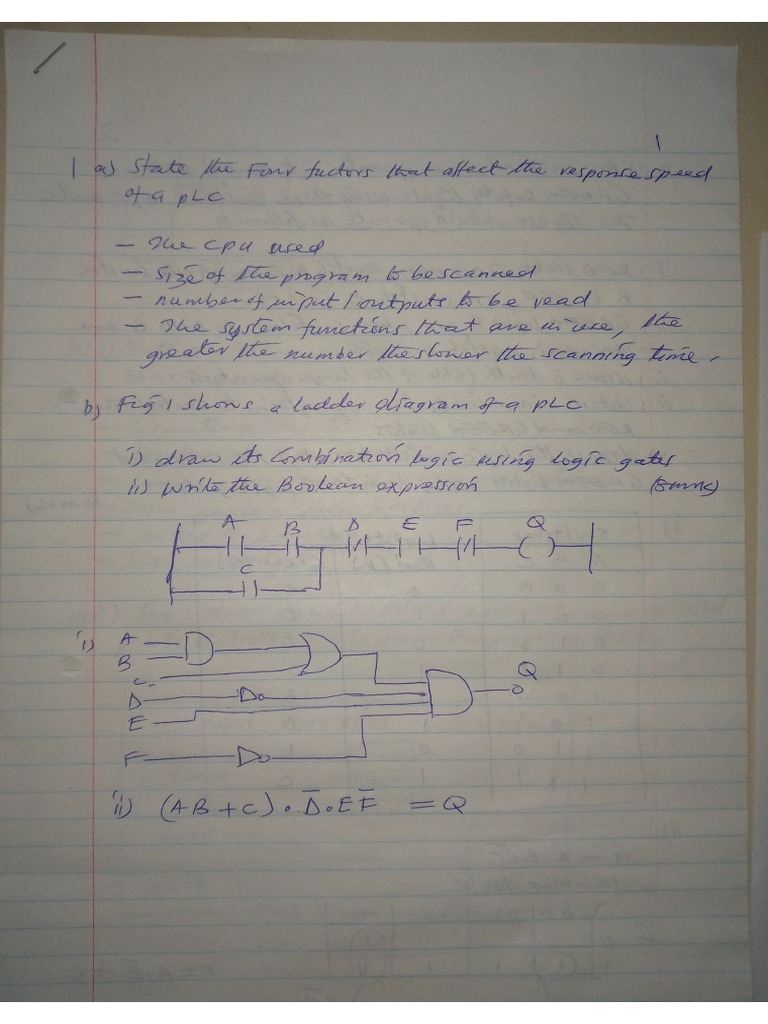 1
1 a) State the Four factors that affect the response speed
of a PLC
- The CPU used
- Size of the program to be scanned
- number of input / outputs to be read
- The system functions that are in use, the
greater the number the slower the scanning time.
b) Fig 1 shows a ladder diagram of a PLC
i) draw its Combination logic using logic gates
ii) write the Boolean expression (8mks)
A B D E F Q
C
i) A
B
C
D
E
F
Q
ii) (AB + C) . D̅ . E F̅ = Q